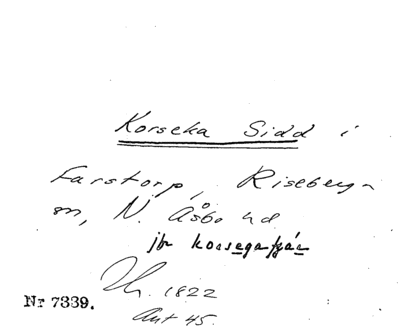 Korseka Sidd i
Farstorp, Riseberga
sn, N. Åsbo hd
jfr korsegafjär
Th. 1822
Ant 45.
Nr 7339.